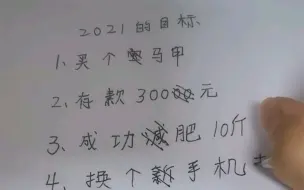 2021的目标
1、买个马甲
2、存款30000元
3、成功减肥10斤
4、换个新手机